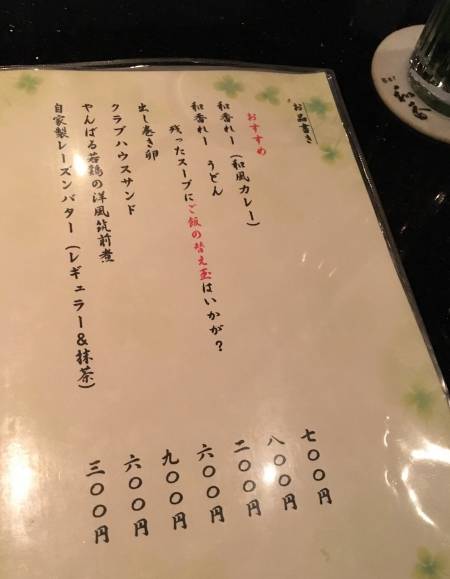 お品書き
おすすめ
和香れー（和風カレー） 七〇〇円
和香れー　うどん 八〇〇円
残ったスープにご飯の替え玉はいかが？ 二〇〇円
出し巻き卵 六〇〇円
クラブハウスサンド 九〇〇円
やんばる若鶏の洋風筑前煮 六〇〇円
自家製レーズンバター（レギュラー＆抹茶） 三〇〇円